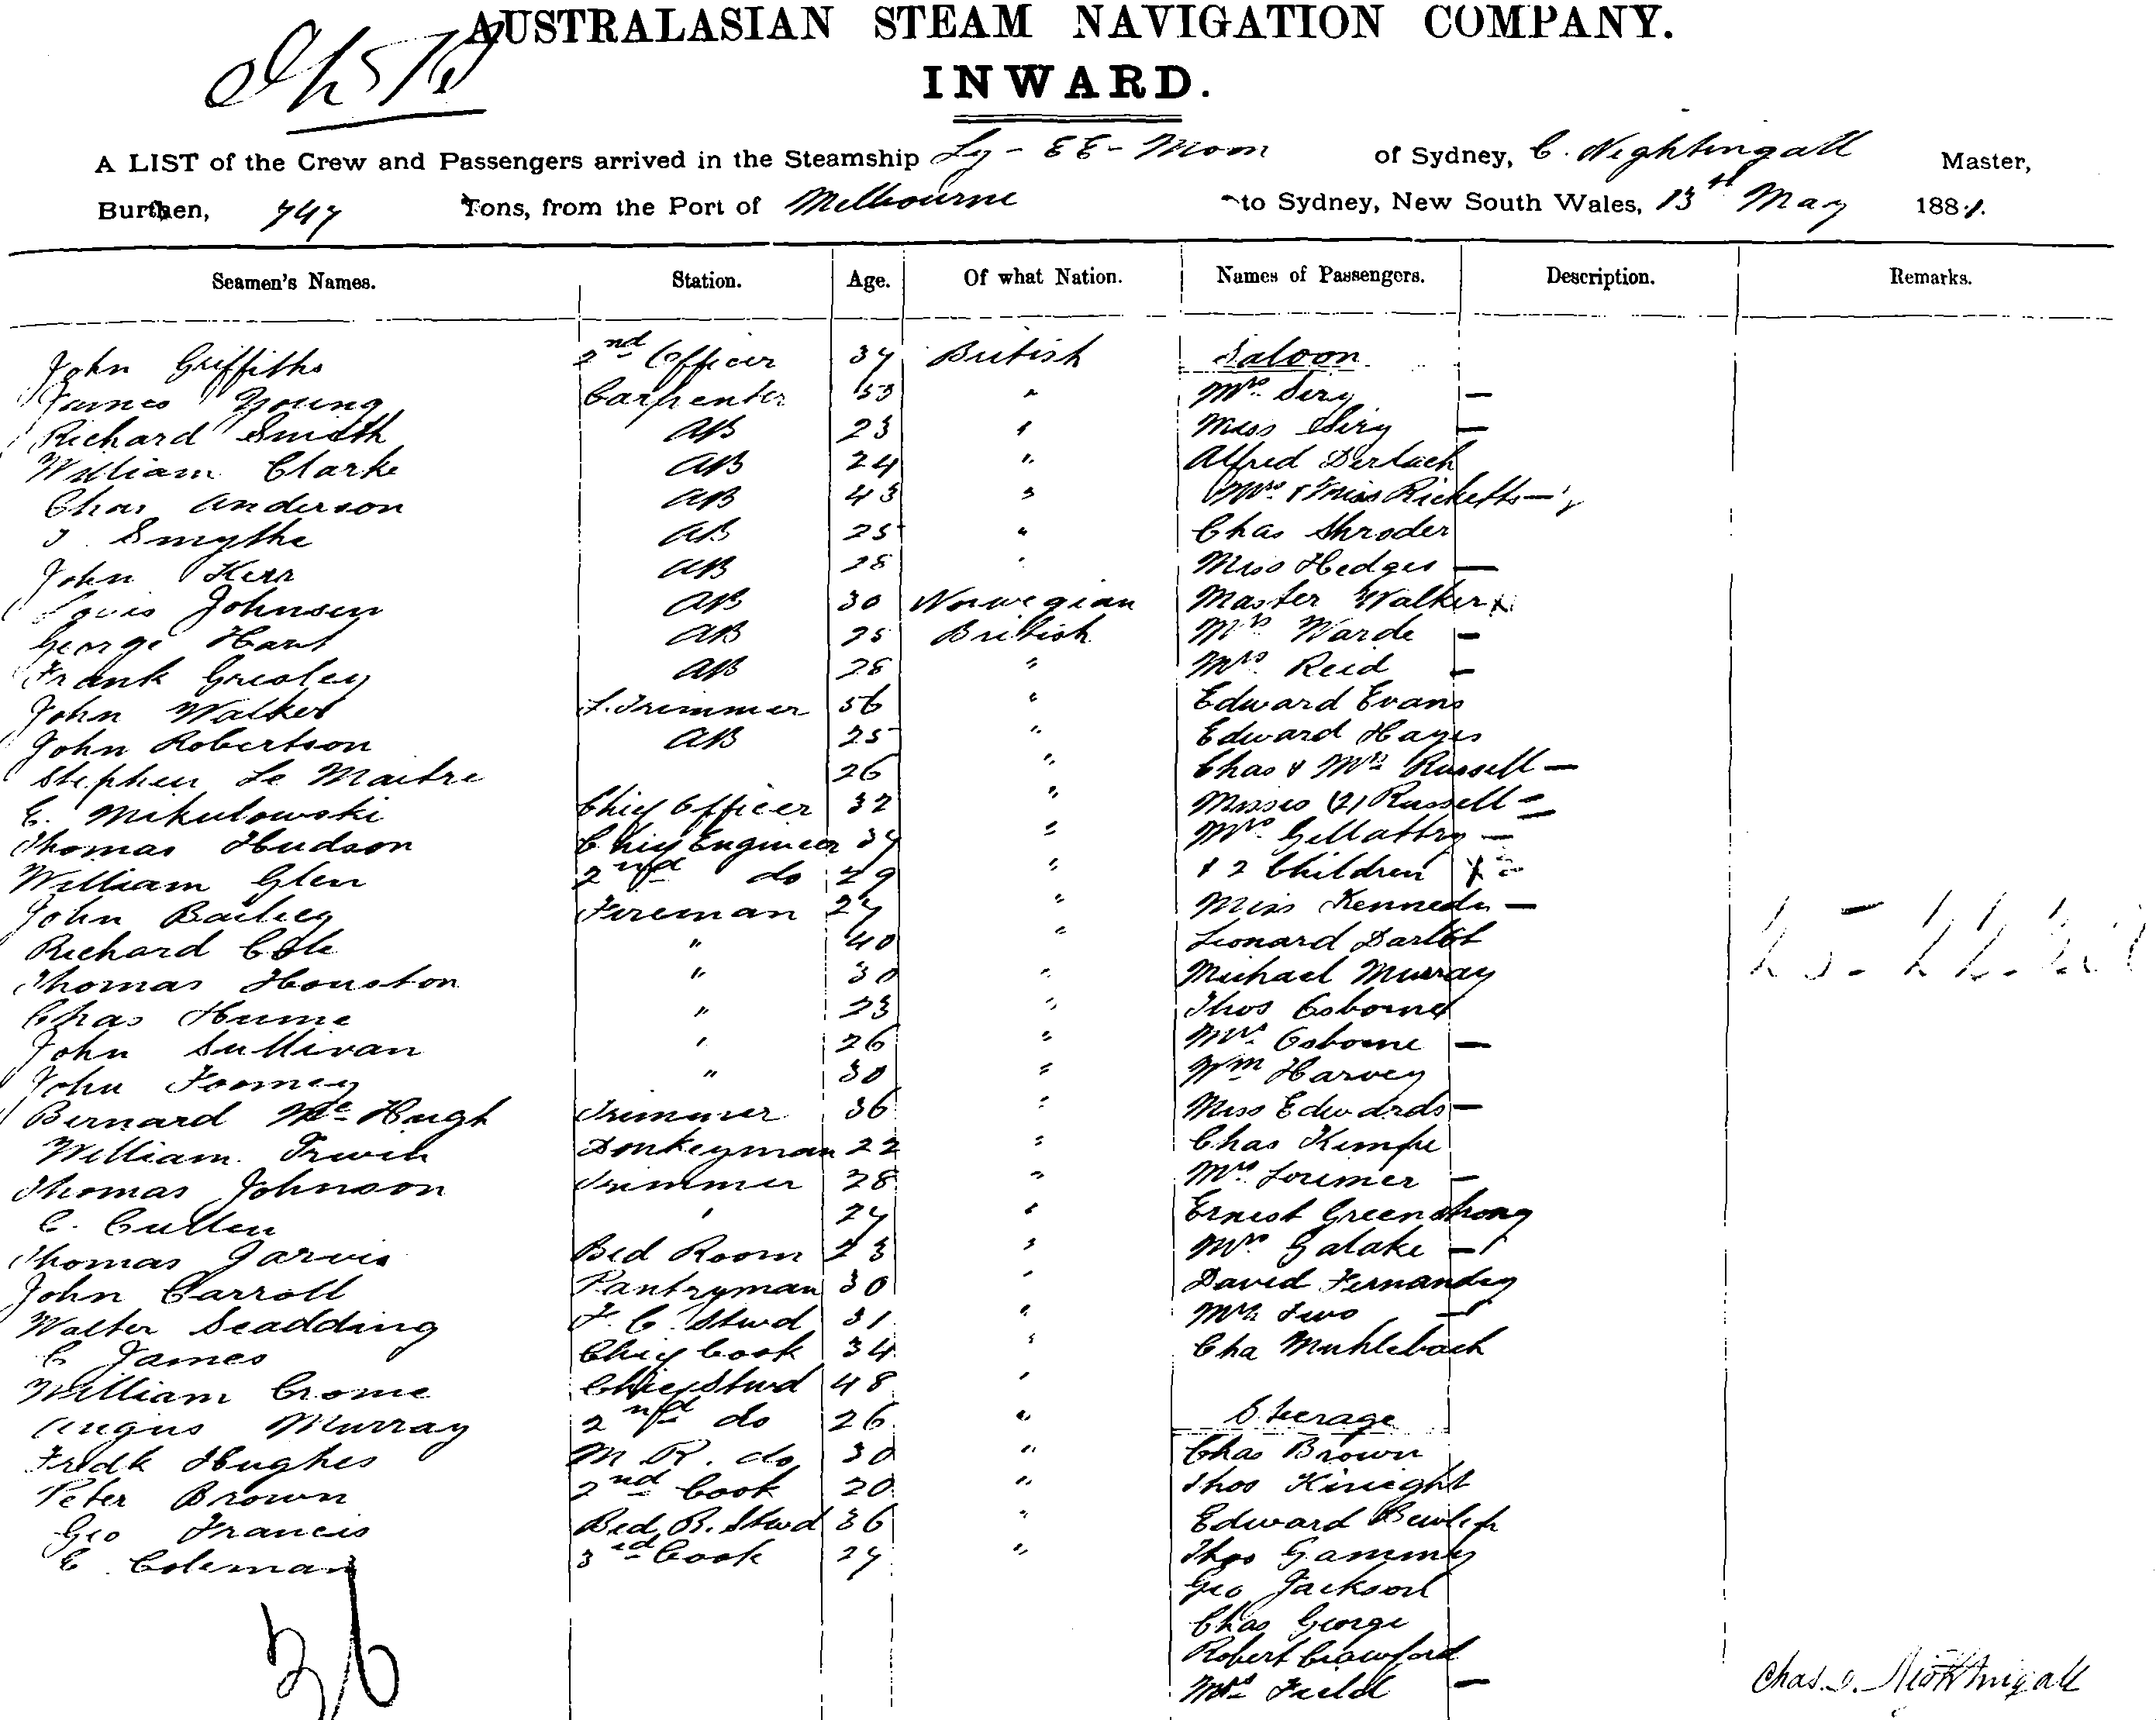 AUSTRALASIAN STEAM NAVIGATION COMPANY.
INWARD.
A LIST of the Crew and Passengers arrived in the Steamship Ly-EE-Moon of Sydney, C. Nightingall Master,
Burthen, 747 Tons, from the Port of Melbourne to Sydney, New South Wales, 13th May 1881.
Seamen's Names. Station. Age. Of what Nation. Names of Passengers. Description. Remarks.
John Griffiths 2nd Officer 37 British Saloon
James Young Carpenter 53 " Mrs Siry —
Richard Smith AB 23 " Miss Siry —
William Clarke AB 24 " Alfred Derlach
Chas Anderson AB 43 " Mrs & Miss Ricketts —
J Smythe AB 25 " Chas Shroder
John Kerr AB 28 " Miss Hedges —
Louis Johnsen AB 30 Norwegian Master Walker
George Hant AB 25 British Mrs Warde —
Frank Gresley AB 28 " Mrs Reid —
John Walker L. Trimmer 56 " Edward Evans
John Robertson AB 25 " Edward Hayes
Stephen Le Maitre 26 " Chas & Mrs Russell —
C. Mikulowski Chief Officer 32 " Misses (2) Russell =
Thomas Hudson Chief Engineer 37 " Mrs Gellattry —
William Glen 2nd do 29 " & 2 Children
John Bailieg Fireman 27 " Miss Kennedy —
Richard Cole " 40 " Leonard Darlot
Thomas Houston " 30 " Michael Murray
Chas Hume " 23 " Thos Osborne
John Sullivan " 26 " Mrs Osborne —
John Toomey " 30 " Wm Harvey
Bernard Mc Hugh Trimmer 36 " Miss Edwards —
William Irwin Donkeyman 22 " Chas Kempe
Thomas Johnson Trimmer 28 " Mrs Lorimer —
C. Cullen " 27 " Ernest Greenstrong
Thomas Jarvis Bed Room 23 " Mrs Galake —
John Carroll Pantryman 30 " David Fernandez
Walter Scadding F. C. Stwd 31 " Mrs Two —
C James Chief Cook 34 " Cha Muhlebach
William Crome Chief Stwd 48 "
Angus Murray 2nd do 26 " Steerage
Fredk Hughes M. R. do 30 " Chas Brown
Peter Brown 2nd Cook 20 " Thos Knight
Geo Francis Bed R. Stwd 36 " Edward
C. Coleman 3rd Cook 27 " Thos Gammy
Geo Jackson
Chas George
Robert Crawford
36 Mrs Field —
Chas. Nightingall